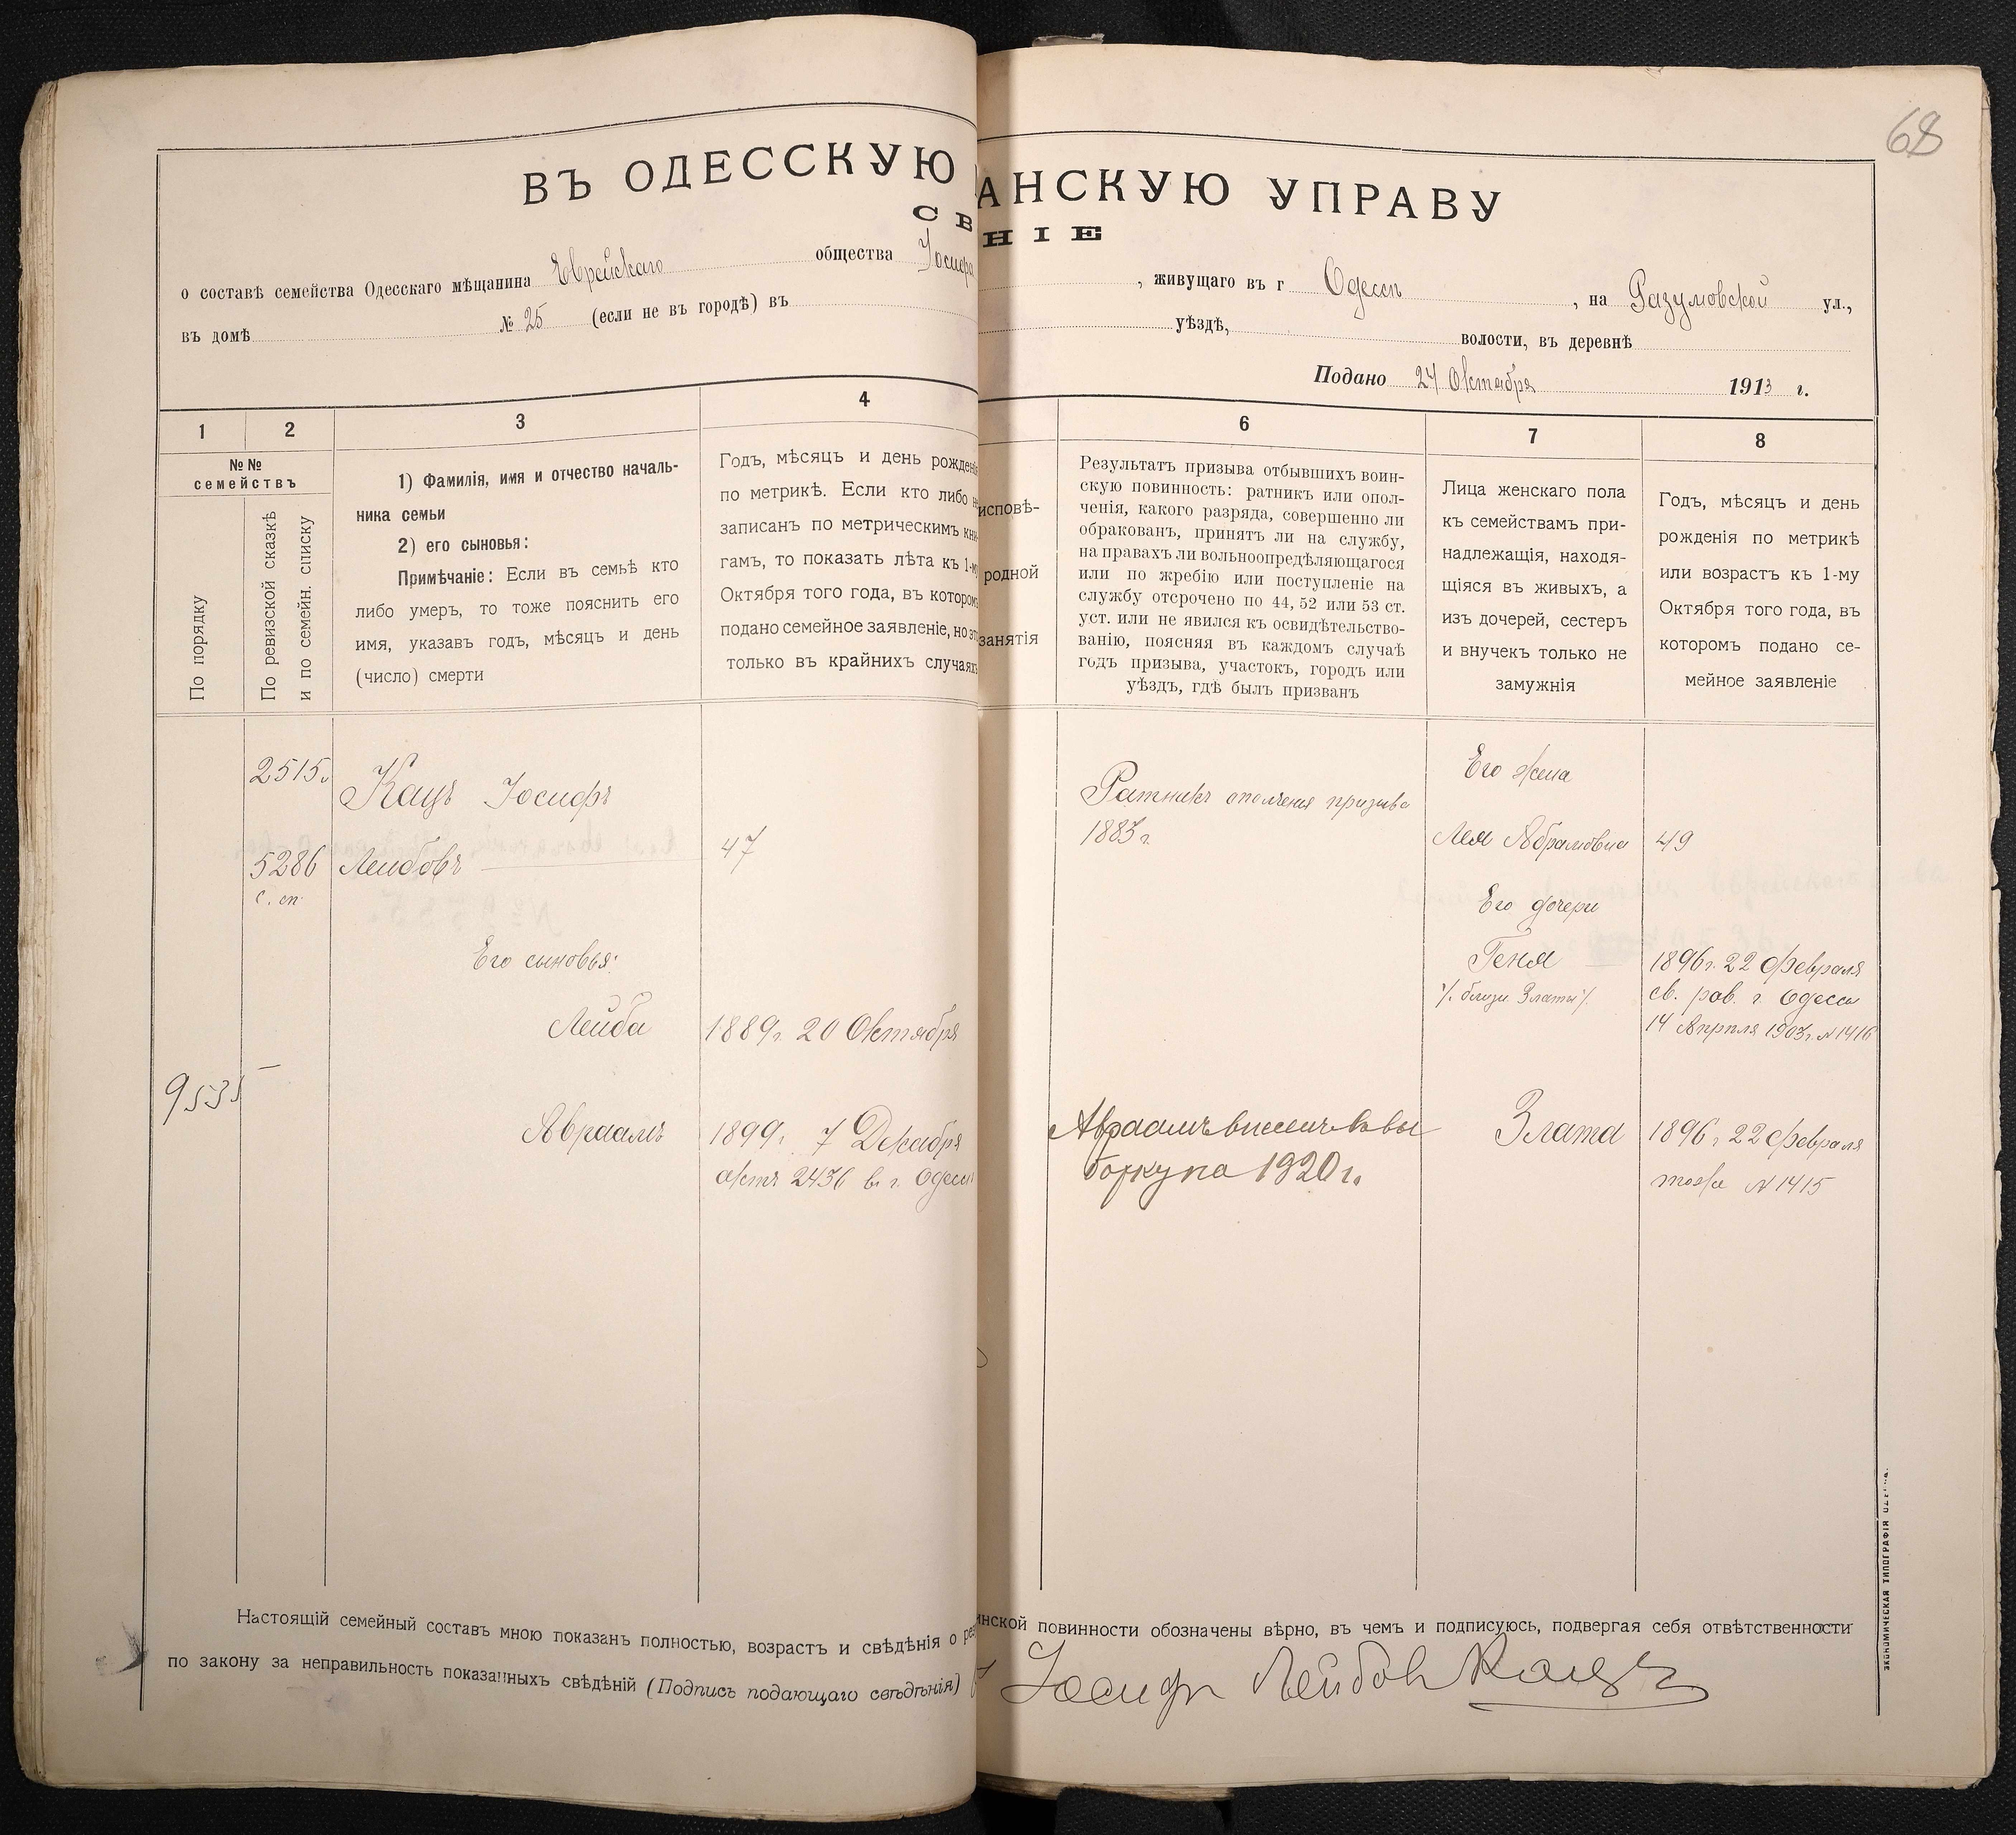 68
ВЪ ОДЕССКУЮ
АНСКУЮ УПРАВУ
СВ
НІЕ
о составѣ семейства Одесскаго мѣщанина Еврейскаго общества Іосифа
, живущаго въ г Одессѣ , на Разумовской ул.,
въ домѣ № 25 (если не въ городѣ) въ
уѣздѣ, волости, въ деревнѣ
Подано 24 Октября 1913 г.
1
2
3
4
6
7
8
№№
семействъ
По порядку
По ревизской сказкѣ
и по семейн. списку
1) Фамилія, имя и отчество началь-
ника семьи
2) его сыновья:
Примѣчаніе: Если въ семьѣ кто
либо умеръ, то тоже пояснить его
имя, указавъ годъ, мѣсяцъ и день
(число) смерти
Годъ, мѣсяцъ и день рожденія
по метрикѣ. Если кто либо не
записанъ по метрическимъ кни-
гамъ, то показать лѣта къ 1-му
Октября того года, въ которомъ
подано семейное заявленіе, но это
только въ крайнихъ случаяхъ
исповѣ-
родной
занятія
Результатъ призыва отбывшихъ воин-
скую повинность: ратникъ или опол-
ченія, какого разряда, совершенно ли
обракованъ, принятъ ли на службу,
на правахъ ли вольноопредѣляющагося
или по жребію или поступленіе на
службу отсрочено по 44, 52 или 53 ст.
уст. или не явился къ освидѣтельство-
ванію, поясняя въ каждомъ случаѣ
годъ призыва, участокъ, городъ или
уѣздъ, гдѣ былъ призванъ
Лица женскаго пола
къ семействамъ при-
надлежащія, находя-
щіяся въ живыхъ, а
изъ дочерей, сестеръ
и внучекъ только не
замужнія
Годъ, мѣсяцъ и день
рожденія по метрикѣ
или возрастъ къ 1-му
Октября того года, въ
котором подано се-
мейное заявленіе
2515
Кацъ Іосифъ
Ратникъ ополченія призыва
1883 г.
Его жена
5286
с. сп.
Лейбовъ
47
Лея Абрамовна
49
Его дочери
Его сыновья:
Геня
/. близн. Златы /.
1896 г. 22 Февраля
св. рав. г. Одессы
14 Апрѣля 1903 г. № 1416
Лейба
1889 г. 20 Октября
9535
Авраамъ
1899 г. 7 Декабря
актъ 2436 в. г. Одессѣ
Авраамъ внесенъ въ вы
борку на 1920 г.
Злата
1896 г. 22 Февраля
тоже № 1415
Настоящій семейный составъ мною показанъ полностью, возрастъ и свѣдѣнія о рез
инской повинности обозначены вѣрно, въ чемъ и подписуюсь, подвергая себя отвѣтственности
по закону за неправильность показанныхъ свѣдѣній (Подпись подающаго свѣдѣнія)
Іосифъ Лейбовъ Кацъ
ЭКОНОМИЧЕСКАЯ ТИПОГРАФІЯ